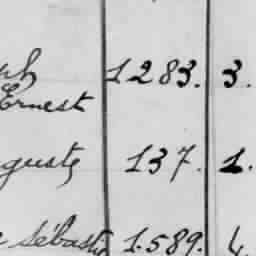 ph 1283. 3.
Ernest
guste 137. 1.
e Sébastie 1.589. 4.